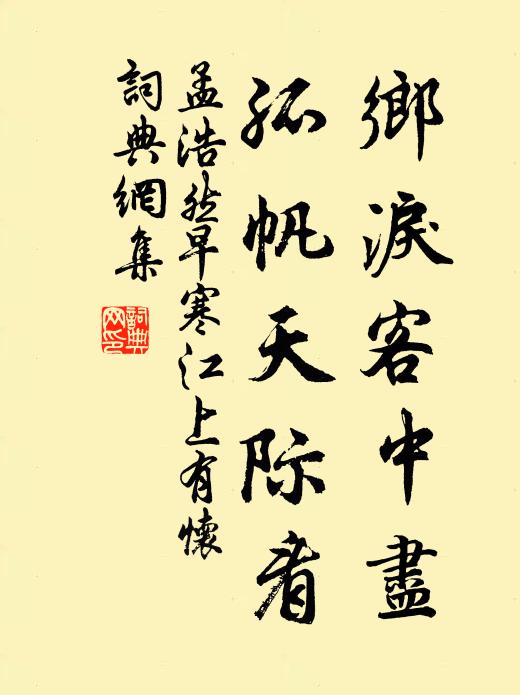 鄉淚客中盡
孤帆天际看
孟浩然早寒江上有懷
詞典網集
詞典网印